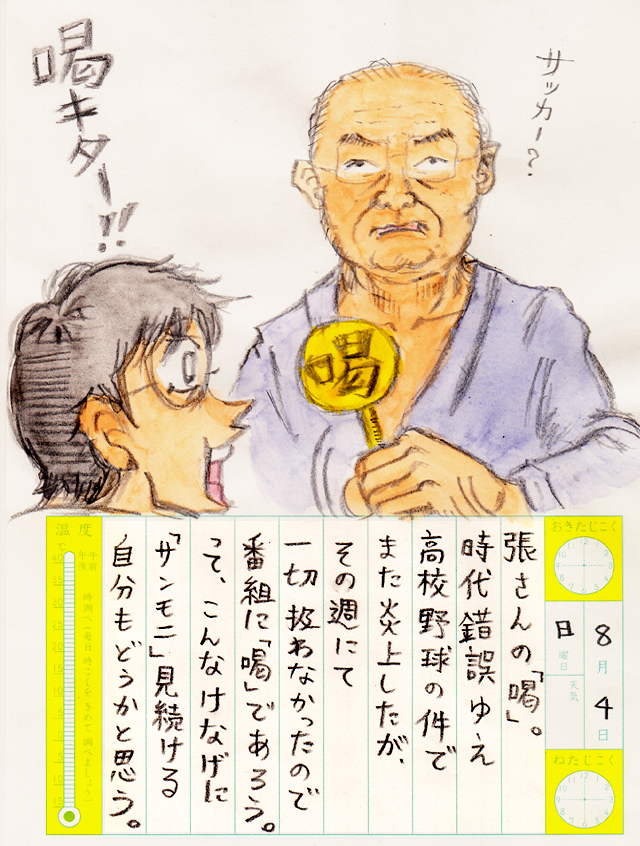 喝キター!!
サッカー?
喝
おきたじこく
8月4日
日曜日
天気
ねたじこく
張さんの「喝」。
時代錯誤ゆえ
高校野球の件で
また炎上したが、
その週にて
一切扱わなかったので
番組に「喝」であろう。
って、こんなけなげに
「サンモニ」見続ける
自分もどうかと思う。
温度
℃
午前
午後
時調べ(毎日 時こくをきめて 調べましょう)